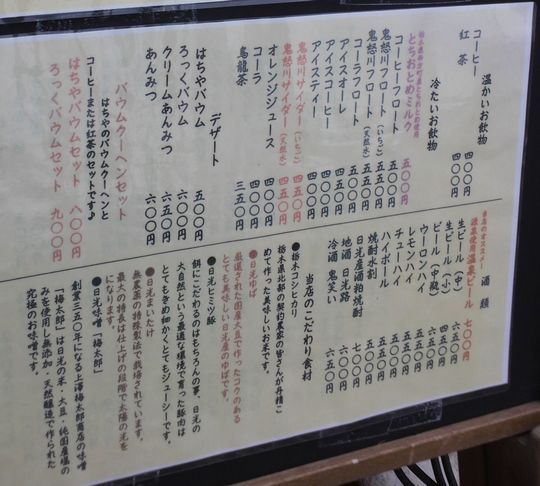 温かいお飲物
コーヒー 四〇〇円
紅茶 四〇〇円
冷たいお飲物
とちおとめミルク 五〇〇円
コーヒーフロート
鬼怒川フロート(いちご)
鬼怒川フロート(天然水)
コーラフロート
アイスオーレ
アイスコーヒー
アイスティー 四〇〇円
鬼怒川サイダー(いちご) 四五〇円
鬼怒川サイダー(天然水) 四五〇円
オレンジジュース 四〇〇円
コーラ 四〇〇円
烏龍茶 三五〇円
デザート
はちやバウム 五〇〇円
ろっくバウム 六〇〇円
クリームあんみつ 六五〇円
あんみつ 六〇〇円
バウムクーヘンセット
はちやのバウムクーヘンと
コーヒーまたは紅茶のセットです♪
はちやバウムセット 八〇〇円
ろっくバウムセット 九〇〇円
酒類
当店のオススメ!
源泉使用温泉ビール 七〇〇円
生ビール(中)
生ビール(小)
ビール(中瓶)
ウーロンハイ
レモンハイ
チューハイ
ハイボール
焼酎水割
日光産酒粕焼酎
地酒 日光路
冷酒 鬼笑い
当店のこだわり食材
●栃木コシヒカリ
栃木県北部の契約農家の皆さんが丹精こ
めて作った美味しいお米です。
●日光ゆば
厳選された国産大豆で作ったコクのある
とても美味しい日光産のゆばです。
●日光ヒミツ豚
餌にこだわるのはもちろんの事、日光の
大自然という最適な環境で育った豚肉は
とてもきめ細かくとてもジューシーです。
●日光まいたけ
無農薬の特殊製法で栽培されています。
最大の特長は仕上げの段階で太陽の光を
になります。
●日光味噌「梅太郎」
創業三五〇年になる上澤梅太郎商店の味噌
「梅太郎」は日光の米・大豆・純国産塩の
みを使用し無添加・天然醸造で作られた
究極のお味噌です。